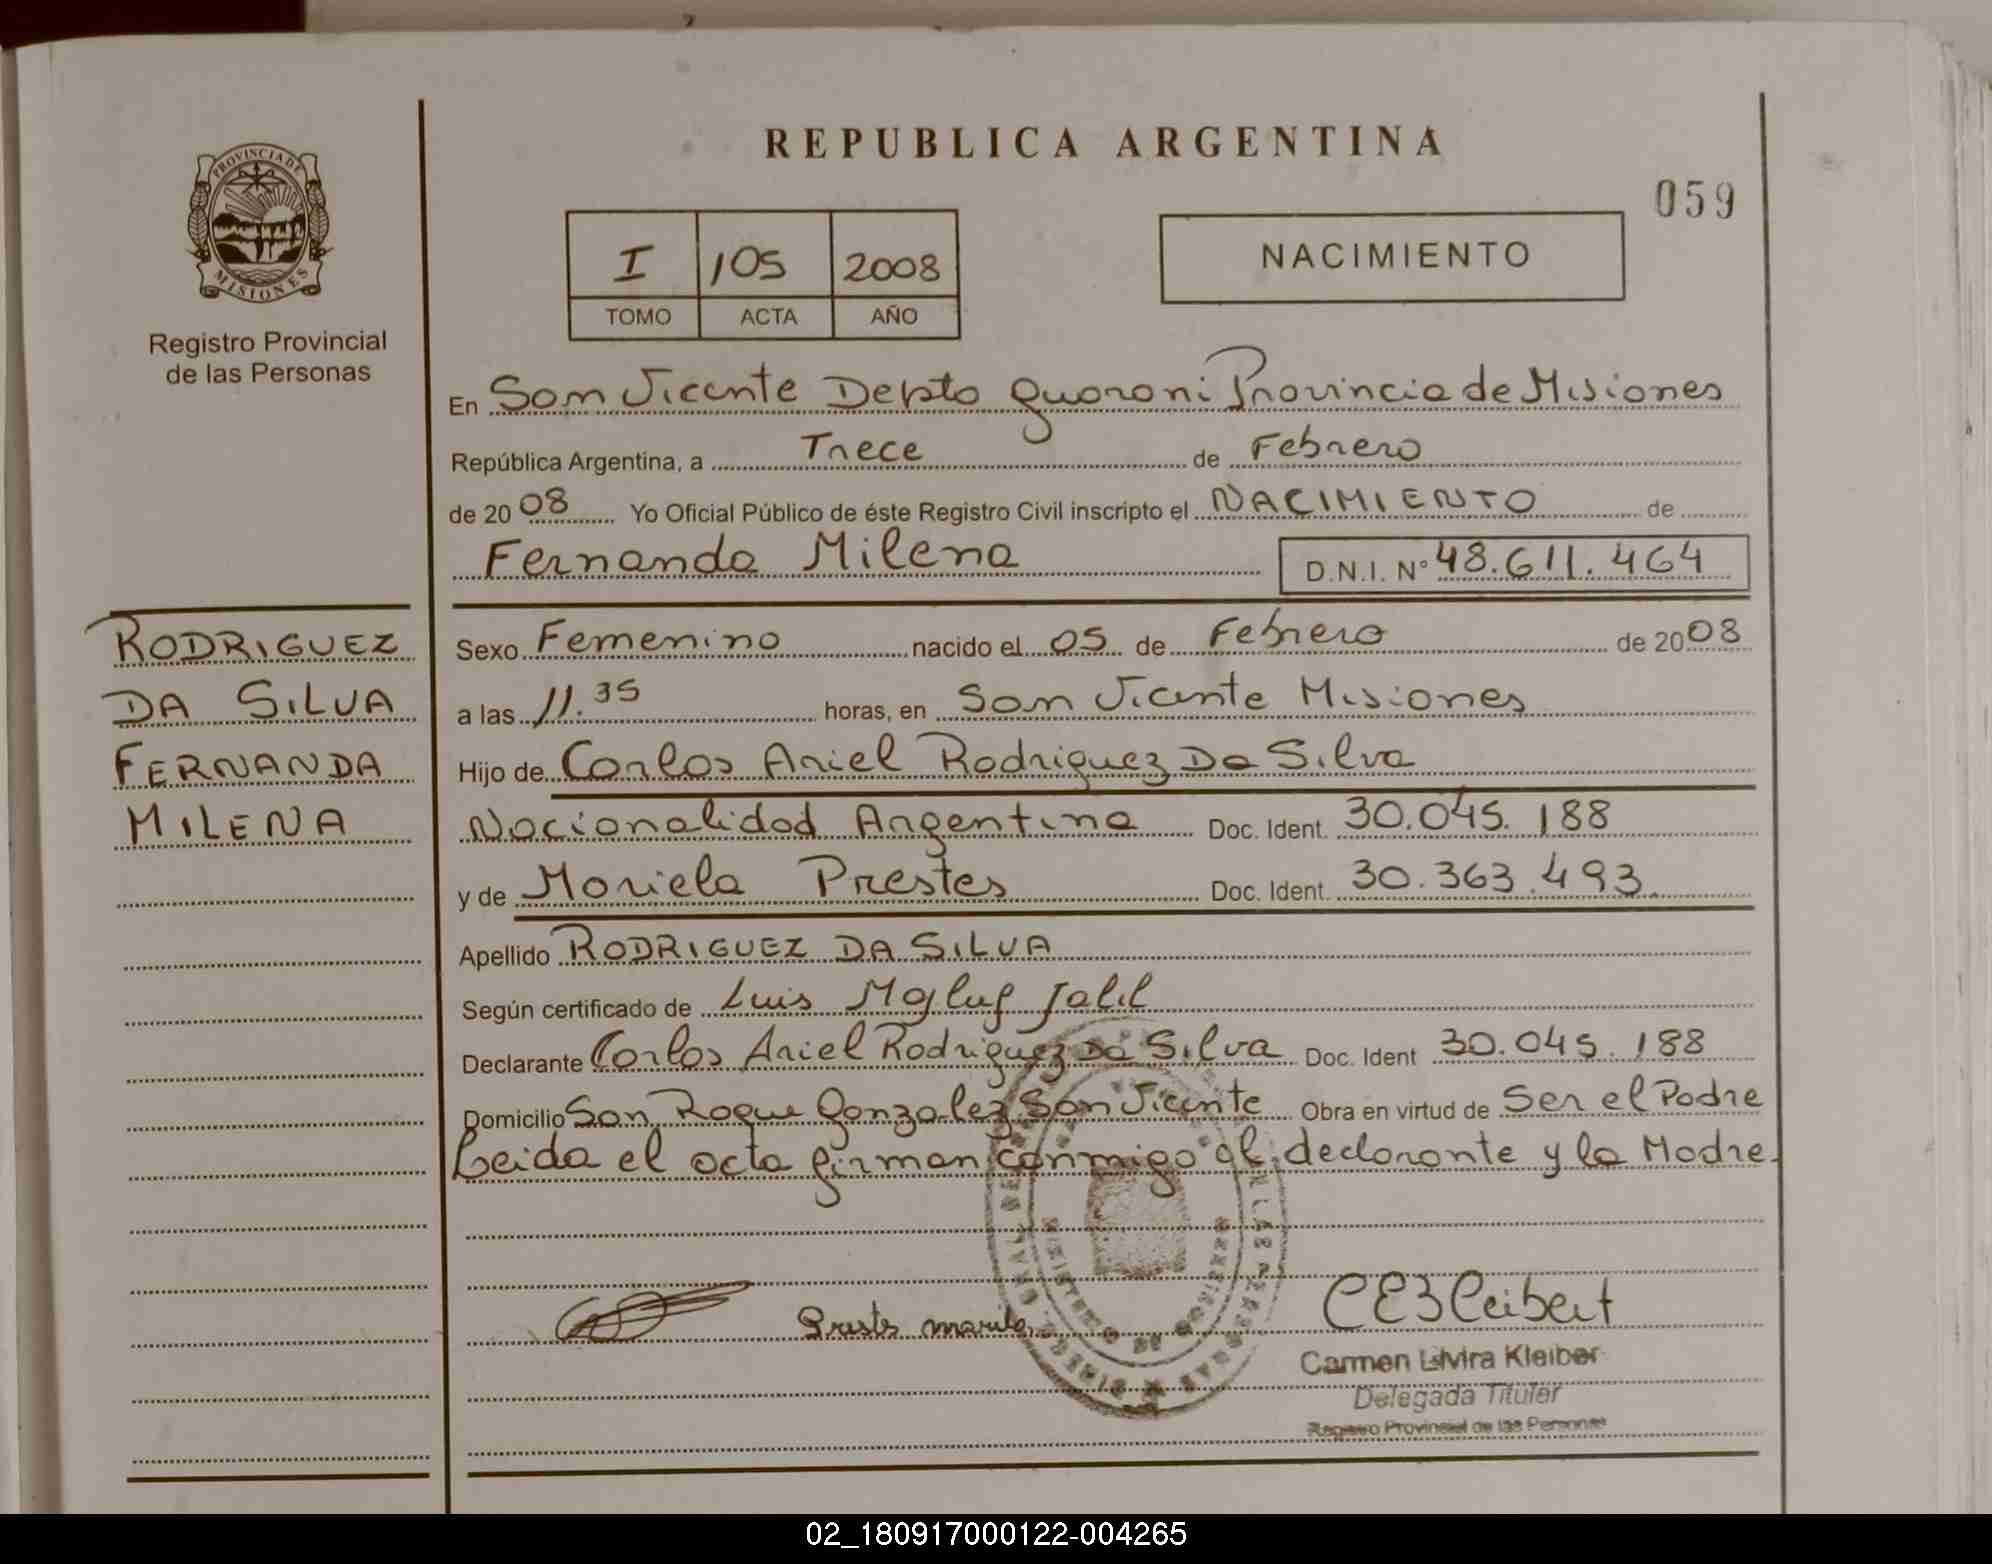 REPUBLICA ARGENTINA
059
PROVINCIA DE
MISIONES
Registro Provincial
de las Personas
I 105 2008
TOMO ACTA AÑO
NACIMIENTO
En San Vicente Depto Guarani Provincia de Misiones
República Argentina, a Trece de Febrero
de 2008 Yo Oficial Público de éste Registro Civil inscripto el NACIMIENTO de
Fernanda Milena D.N.I. N° 48.611.464
RODRIGUEZ
DA SILVA
FERNANDA
MILENA
Sexo Femenino nacido el 05 de Febrero de 2008
a las 11.35 horas, en San Vicente Misiones
Hijo de Carlos Ariel Rodriguez Da Silva
Nacionalidad Argentina Doc. Ident. 30.045.188
y de Mariela Prestes Doc. Ident. 30.363.493.
Apellido RODRIGUEZ DA SILVA
Según certificado de Luis Maluf Jalil
Declarante Carlos Ariel Rodriguez Da Silva Doc. Ident 30.045.188
Domicilio San Roque Gonzalez San Vicente Obra en virtud de Ser el Padre
Leida el acta firman conmigo el declarante y la Madre.
Carmen Elvira Kleiber
Delegada Titular
Registro Provincial de las Personas
02_180917000122-004265